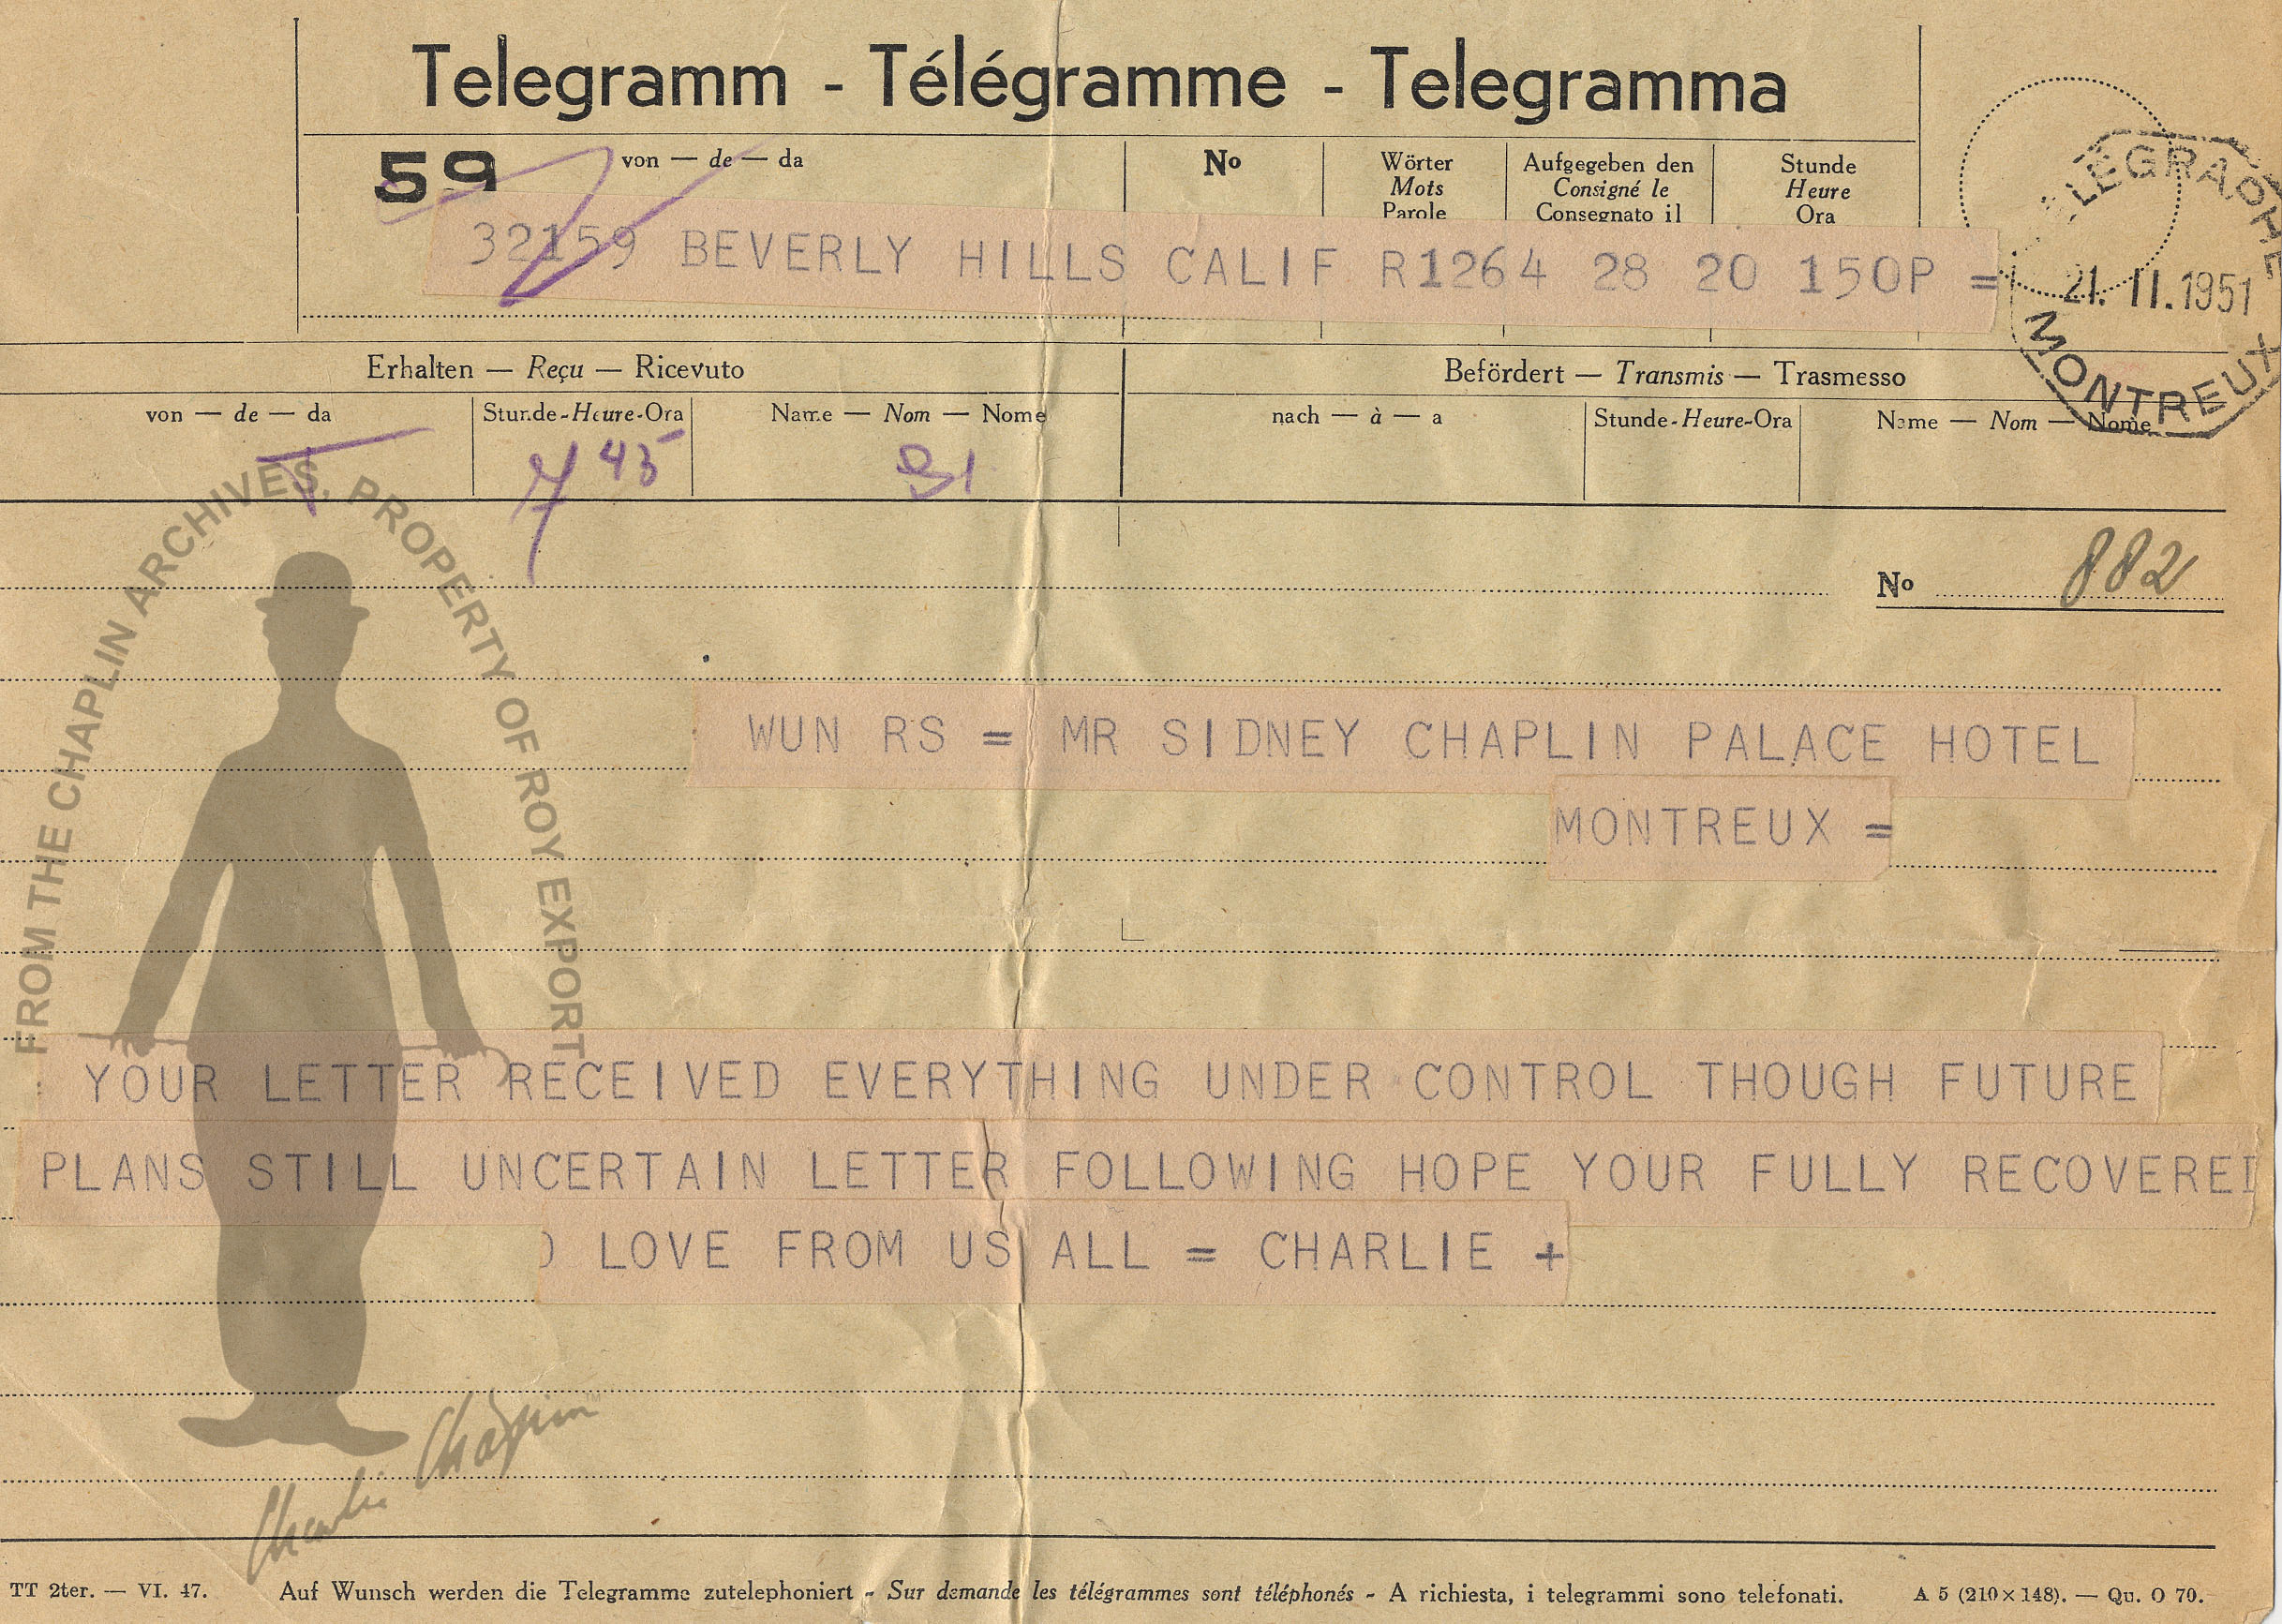 Telegramm - Télégramme - Telegramma
59
von — de — da
No
Wörter
Mots
Parole
Aufgegeben den
Consigné le
Consegnato il
Stunde
Heure
Ora
TELEGRAPHE
21. II. 1951
MONTREUX
32159 BEVERLY HILLS CALIF R1264 28 20 150P =
Erhalten — Reçu — Ricevuto
Befördert — Transmis — Trasmesso
von — de — da
Stunde-Heure-Ora
Name — Nom — Nome
nach — à — a
Stunde-Heure-Ora
Name — Nom — Nome
7 45
No 882
FROM THE CHAPLIN ARCHIVES, PROPERTY OF ROY EXPORT
WUN RS = MR SIDNEY CHAPLIN PALACE HOTEL
MONTREUX =
YOUR LETTER RECEIVED EVERYTHING UNDER CONTROL THOUGH FUTURE
PLANS STILL UNCERTAIN LETTER FOLLOWING HOPE YOUR FULLY RECOVERED
D LOVE FROM US ALL = CHARLIE +
Charlie Chaplin
TT 2ter. — VI. 47.
Auf Wunsch werden die Telegramme zutelephoniert - Sur demande les télégrammes sont téléphonés - A richiesta, i telegrammi sono telefonati.
A 5 (210×148). — Qu. O 70.